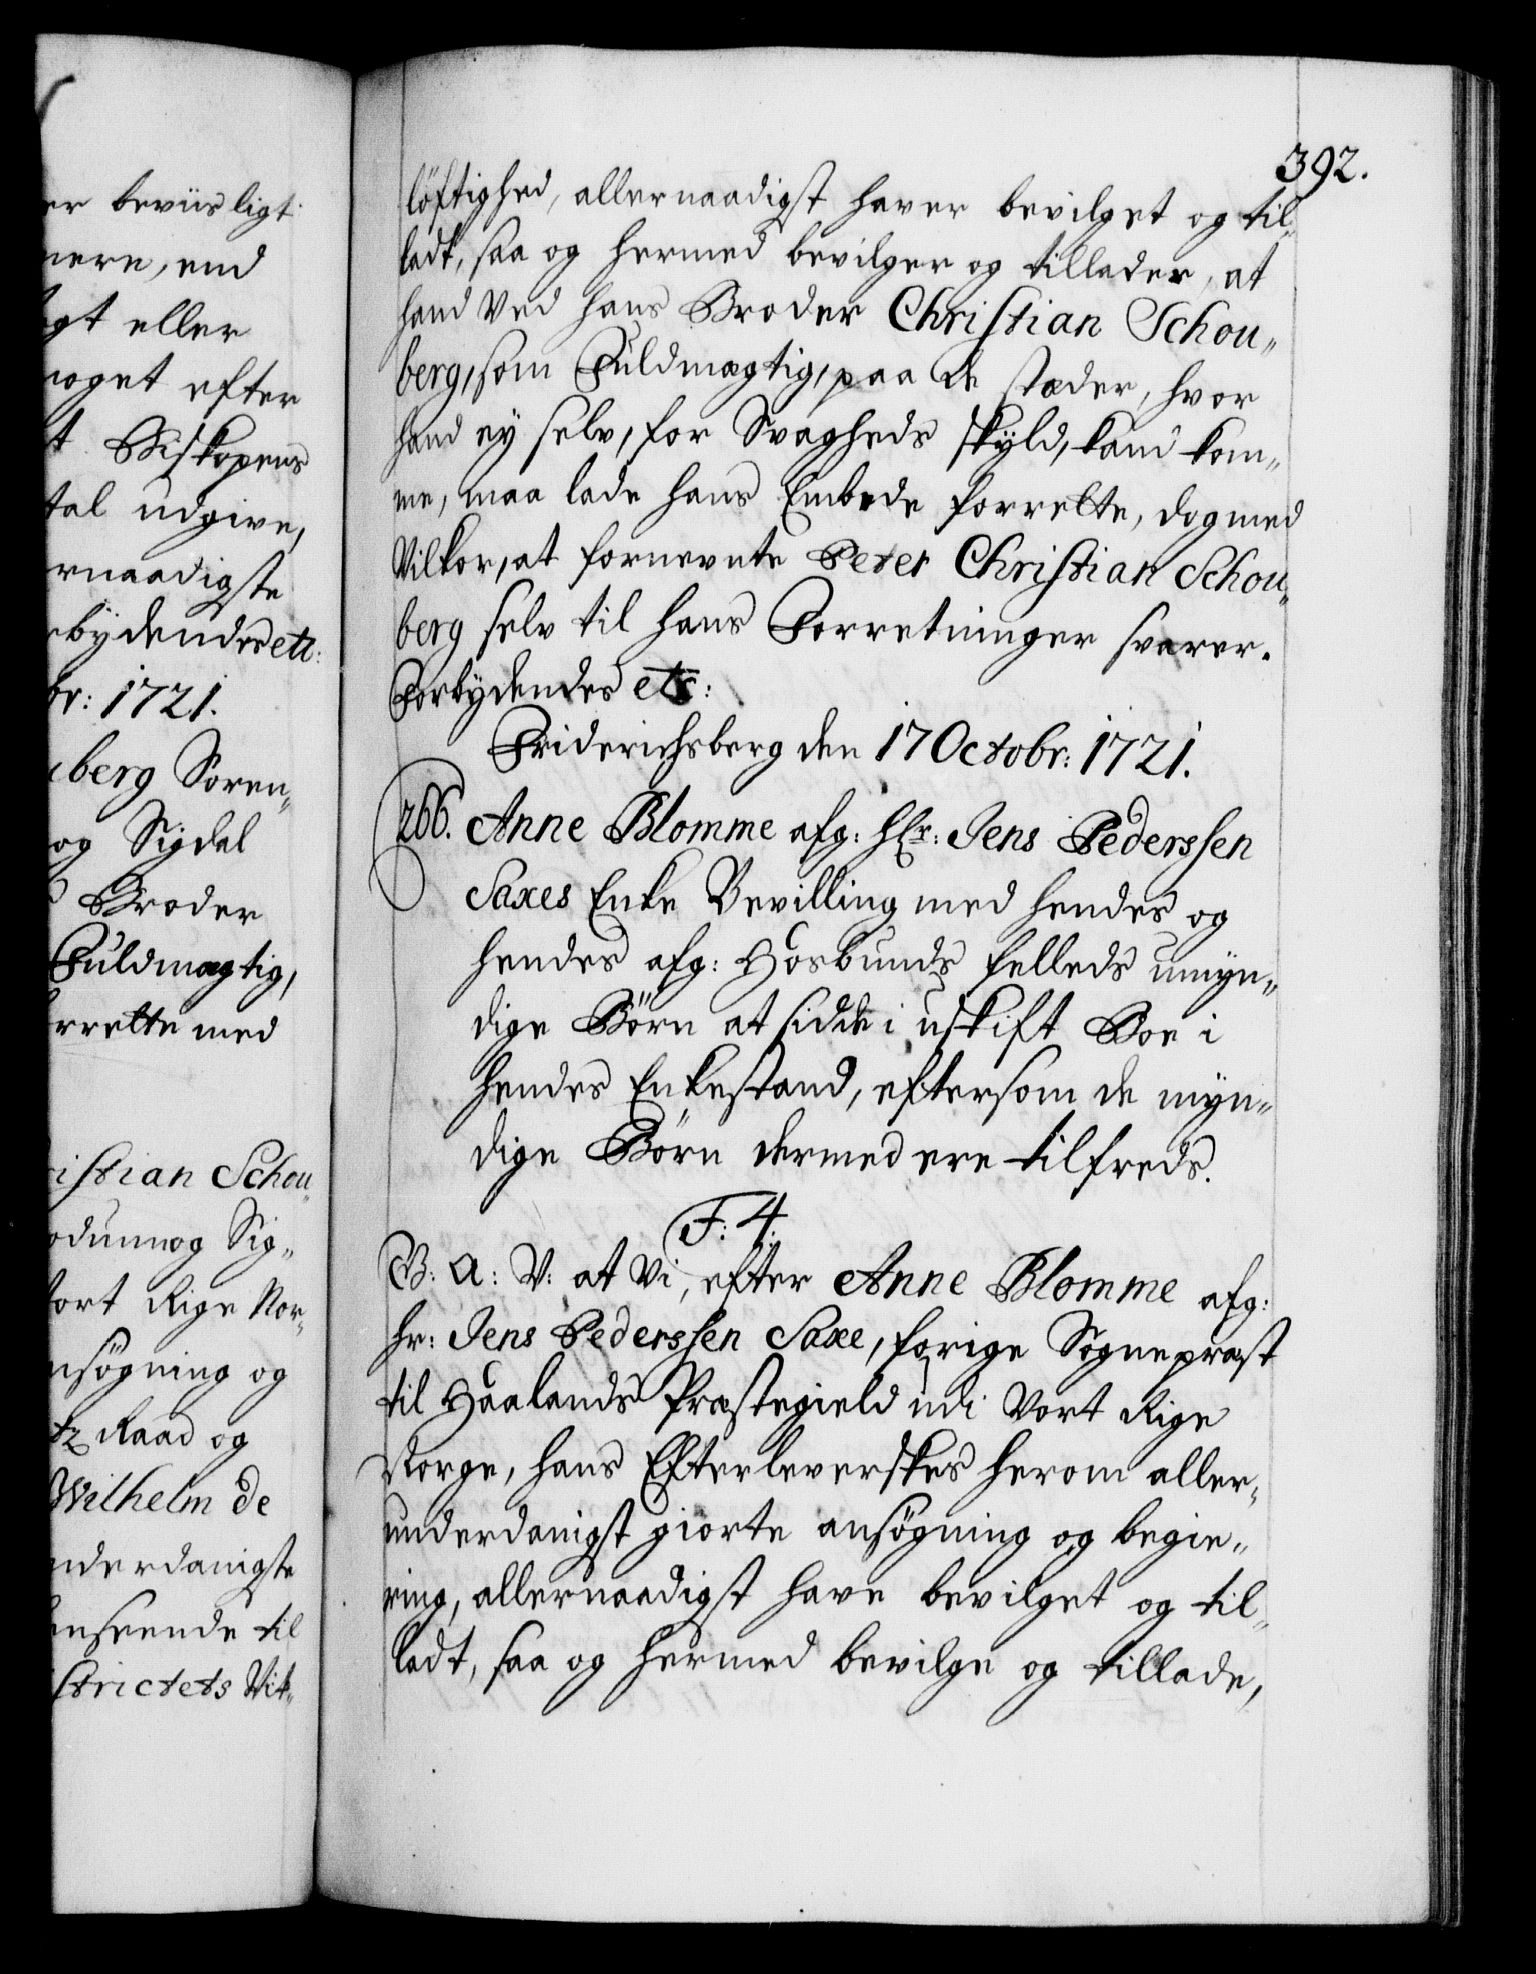 er beviisligt
mere, end
gt eller
noget efter
t Biskopens
tal udgive,
rnaadigste
rbydendes etc:
br: 1721.
berg Soren„
og Sigdal
Broder
Fuldmægtig,
rrette med
ristian Schou„
odum og Sig„
ort Rige Nor„
nsøgning og
tz Raad og
Wilhelm de
nderdanigste
anseende til
strictets Vit„
392.
löftighed, allernaadigst haver bevilget og til„
ladt, saa og hermed bevilger og tillader, at
hand ved hans Broder Christian Schou„
berg, som Fuldmægtig, paa de stæder, hvor
hand ey selv, for Svagheds skyld, kand kom„
me, maa lade hans Embede forrette, dog med
Vilkor, at fornevnte Peter Christian Schou„
berg selv til hans Forretninger svarer.
Forbydendes etc:
Friderichsberg den 17 Octobr: 1721.
266. Anne Blomme afg: Hr: Jens Pederssen
Saxes Enke Bevilling med hendes og
hendes afg: Hosbunds felleds umyn„
dige Börn at sidde i uskift Boe i
hendes Enkestand, eftersom de myn„
dige Börn dermed ere tilfreds.
F: 4.
G: A: V: at Vi, efter Anne Blomme afg:
hr: Jens Pederssen Saxe, forige Sognepræst
til Haalands Præstegield udi Vort Rige
Norge, hans Efterleverskes herom aller„
underdanigst giorte ansøgning og begie„
ring, allernaadigst have bevilget og til„
ladt, saa og hermed bevilge og tillade,